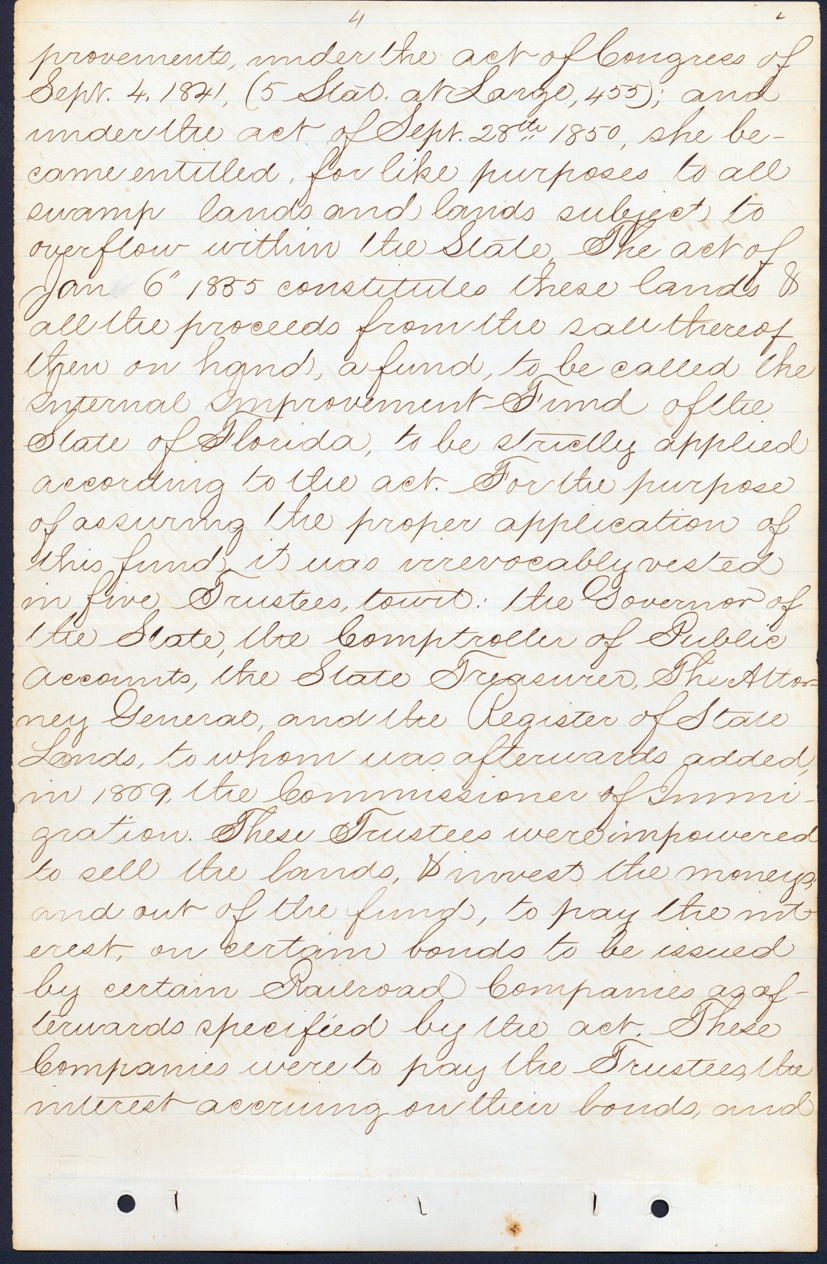 4
provements, under the act of Congress of
Sept. 4. 1841, (5 Stat. at Large, 455); and
under the act of Sept. 28th 1850, she be-
came entitled, for like purposes to all
swamp lands and lands subject to
overflow within the State. The act of
Jan 6" 1855 constitutes these lands &
all the proceeds from the sale thereof
then on hand, a fund, to be called the
Internal Improvement Fund of the
State of Florida, to be strictly applied
according to the act. For the purpose
of assuring the proper application of
this fund, it was irrevocably vested
in five Trustees, towit: the Governor of
the State, the Comptroller of Public
Accounts, the State Treasurer, The Attor-
ney General, and the Register of State
Lands, to whom was afterwards added,
in 1869, the Commissioner of Immi-
gration. These Trustees were impowered
to sell the lands, & invest the moneys,
and out of the fund, to pay the int
erest, on certain bonds to be issued
by certain Railroad Companies as af-
terwards specified by the act. These
Companies were to pay the Trustees, the
interest accruing on their bonds, and